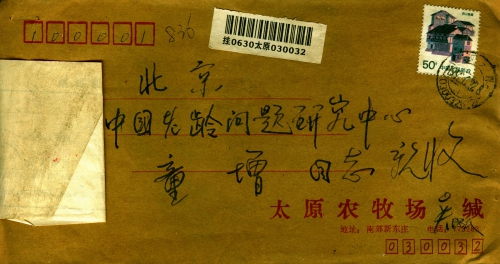 100001 836
挂0630太原030032
50分
北京
中国老龄问题研究中心
童增同志 亲收
太原农牧场 缄
地址：南郊新东庄 电话
030032